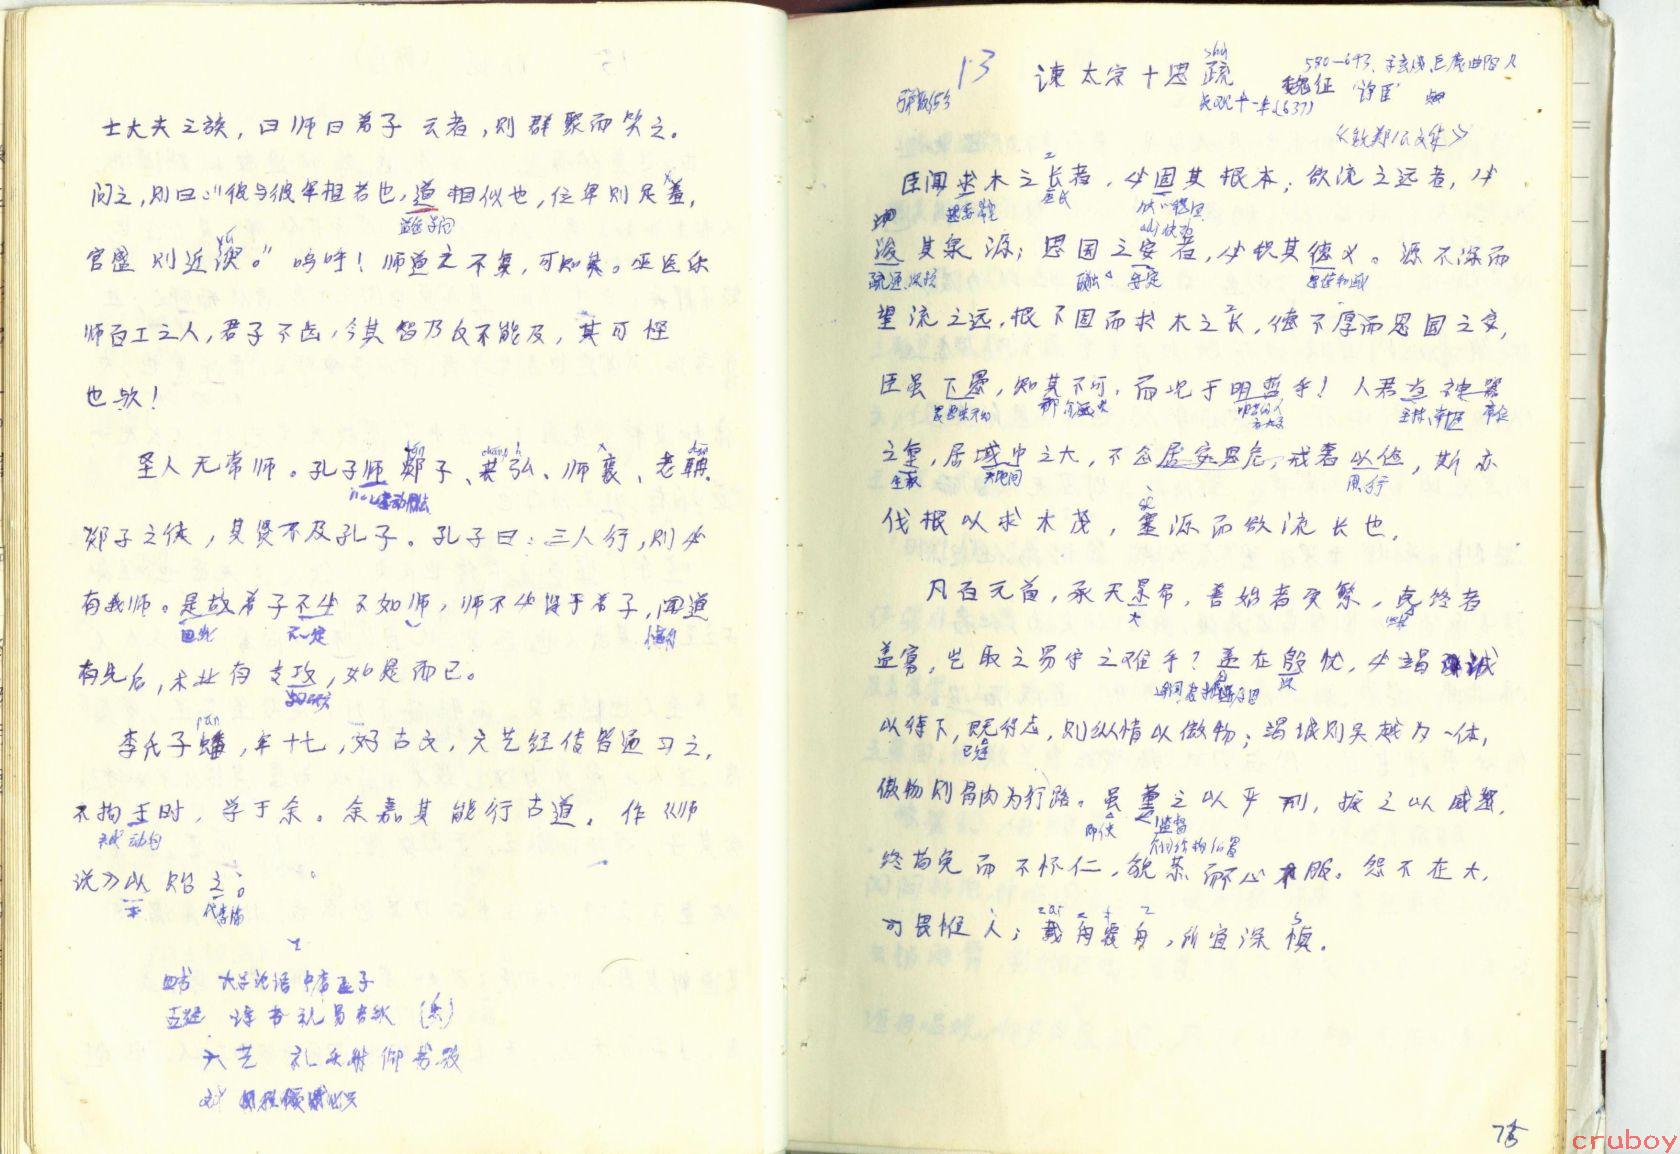 士大夫之族，曰师曰弟子云者，则群聚而笑之。
问之，则曰：“彼与彼年相若也，道相似也，位卑则足羞，
官盛则近谀。”呜呼！师道之不复，可知矣。巫医乐
师百工之人，君子不齿，今其智乃反不能及，其可怪
也欤！
圣人无常师。孔子师郯子、苌弘、师襄、老聃。
郯子之徒，其贤不及孔子。孔子曰：三人行，则必
有我师。是故弟子不必不如师，师不必贤于弟子，闻道
因此 不一定
有先后，术业有专攻，如是而已。
李氏子蟠，年十七，好古文，六艺经传皆通习之，
pán
不拘于时，学于余。余嘉其能行古道，作《师
说》以贻之。
四书 大学论语中孟子
五经 诗书礼易春秋（乐）
六艺 礼乐射御书数
13 谏太宗十思疏 魏征
shū
580-643、字玄成、巨鹿曲阳人
“诤臣”
贞观十一年(637)
《魏郑公文集》
臣闻求木之长者，必固其根本；欲流之远者，必
浚其泉源；思国之安者，必积其德义。源不深而
疏通 安定
望流之远，根不固而求木之长，德不厚而思国之安，
臣虽下愚，知其不可，而况于明哲乎！人君当神器
之重，居域中之大，不念居安思危，戒奢以俭，斯亦
天地间
伐根以求木茂，塞源而欲流长也。
凡百元首，承天景命，善始者实繁，克终者
大
盖寡，岂取之易守之难乎？盖在殷忧，必竭诚
以待下，既得志，则纵情以傲物；竭诚则吴越为一体，
傲物则骨肉为行路。虽董之以严刑，振之以威怒，
即使 监督
终苟免而不怀仁，貌恭而心不服。怨不在大，
可畏惟人；载舟覆舟，所宜深慎。
cruboy